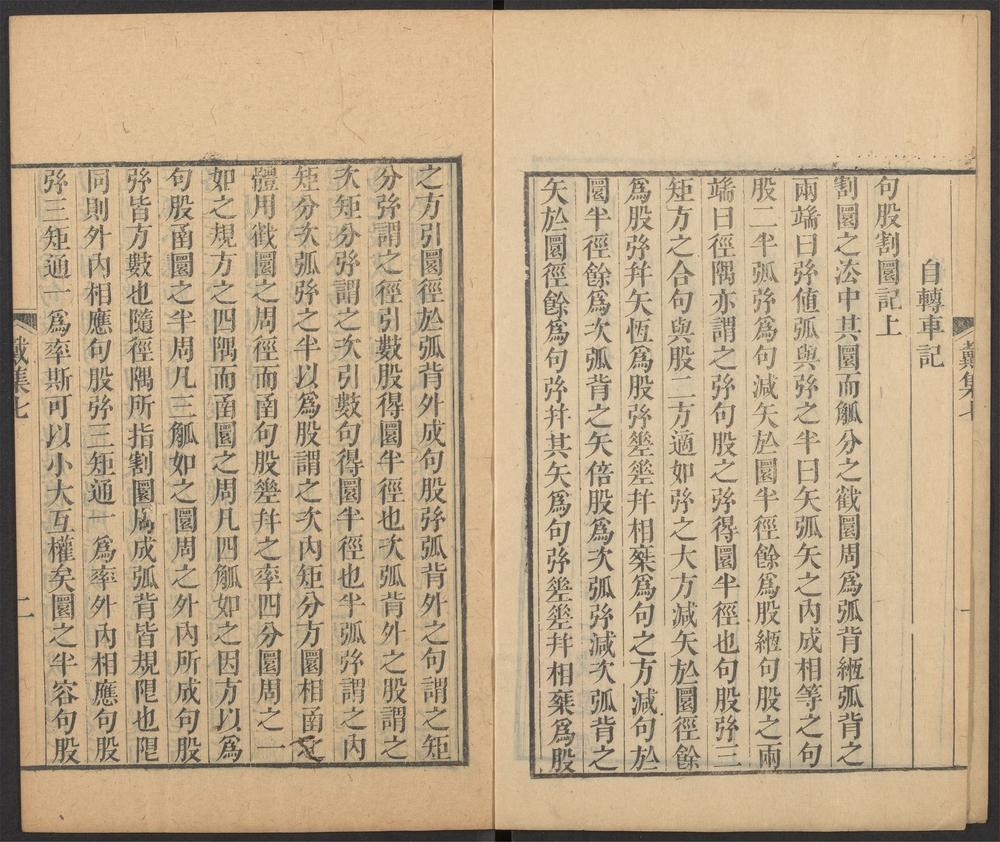 戴集七
一
自轉車記
句股割圜記上
割圜之法中其圜而觚分之截圜周爲弧背縆弧背之
兩端曰弦值弧與弦之半曰矢弧矢之內成相等之句
股二半弧弦爲句減矢於圜半徑餘爲股縆句股之兩
端曰徑隅亦謂之弦句股之弦得圜半徑也句股弦三
矩方之合句與股二方適如弦之大方減矢於圜徑餘
爲股弦幷矢恆爲股弦㘴㘴幷相椉爲句之方減句於
圜半徑餘爲次弧背之矢倍股爲次弧弦減次弧背之
矢於圜徑餘爲句弦幷其矢爲句弦㘴㘴幷相椉爲股
之方引圜徑於弧背外成句股弦弧背外之句謂之矩
分弦謂之徑引數股得圜半徑也次弧背外之股謂之
次矩分弦謂之次引數句得圜半徑也半弧弦謂之內
矩分次弧弦之半以爲股謂之次內矩分方圜相函之
體用截圜之周徑而函句股㘴幷之率四分圜周之一
如之規方之四隅而函圜之周凡四觚如之因方以爲
句股函圜之半周凡三觚如之圜周之外內所成句股
弦皆方數也隨徑隅所指割圜周成弧背皆規限也限
同則外內相應句股弦三矩通一爲率外內相應句股
弦三矩通一爲率斯可以小大互權矣圜之半容句股
戴集七
二